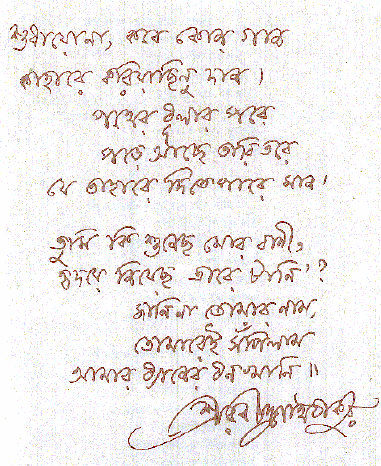 শুধায়োনা, কবে কোন গান
কাহারে করিয়াছিনু দান।
পথের ধূলার পরে
পড়ে আছে তারি তরে
যে তাহারে দিতে পারে মান।
তুমি কি শুনেছ মোর বাণী,
হৃদয়ে নিয়েছ তারে টানি'?
জানিনা তোমার নাম,
তোমারেই সঁপিলাম
আমার ধ্যানের ধনখানি॥
শ্রীরবীন্দ্রনাথ ঠাকুর